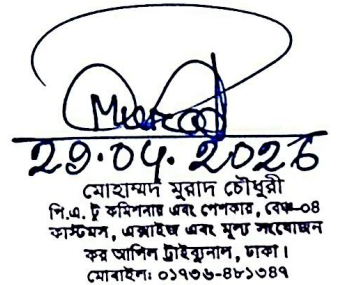 Murad
29.04.2026
মোহাম্মদ মুরাদ চৌধুরী
পি.এ. টু কমিশনার এবং পেশকার, বেঞ্চ-০৪
কাস্টমস, এক্সাইজ এবং মূল্য সংযোজন
কর আপিল ট্রাইব্যুনাল, ঢাকা।
মোবাইল: ০১৭৩৬-৪৮১৩৪৭